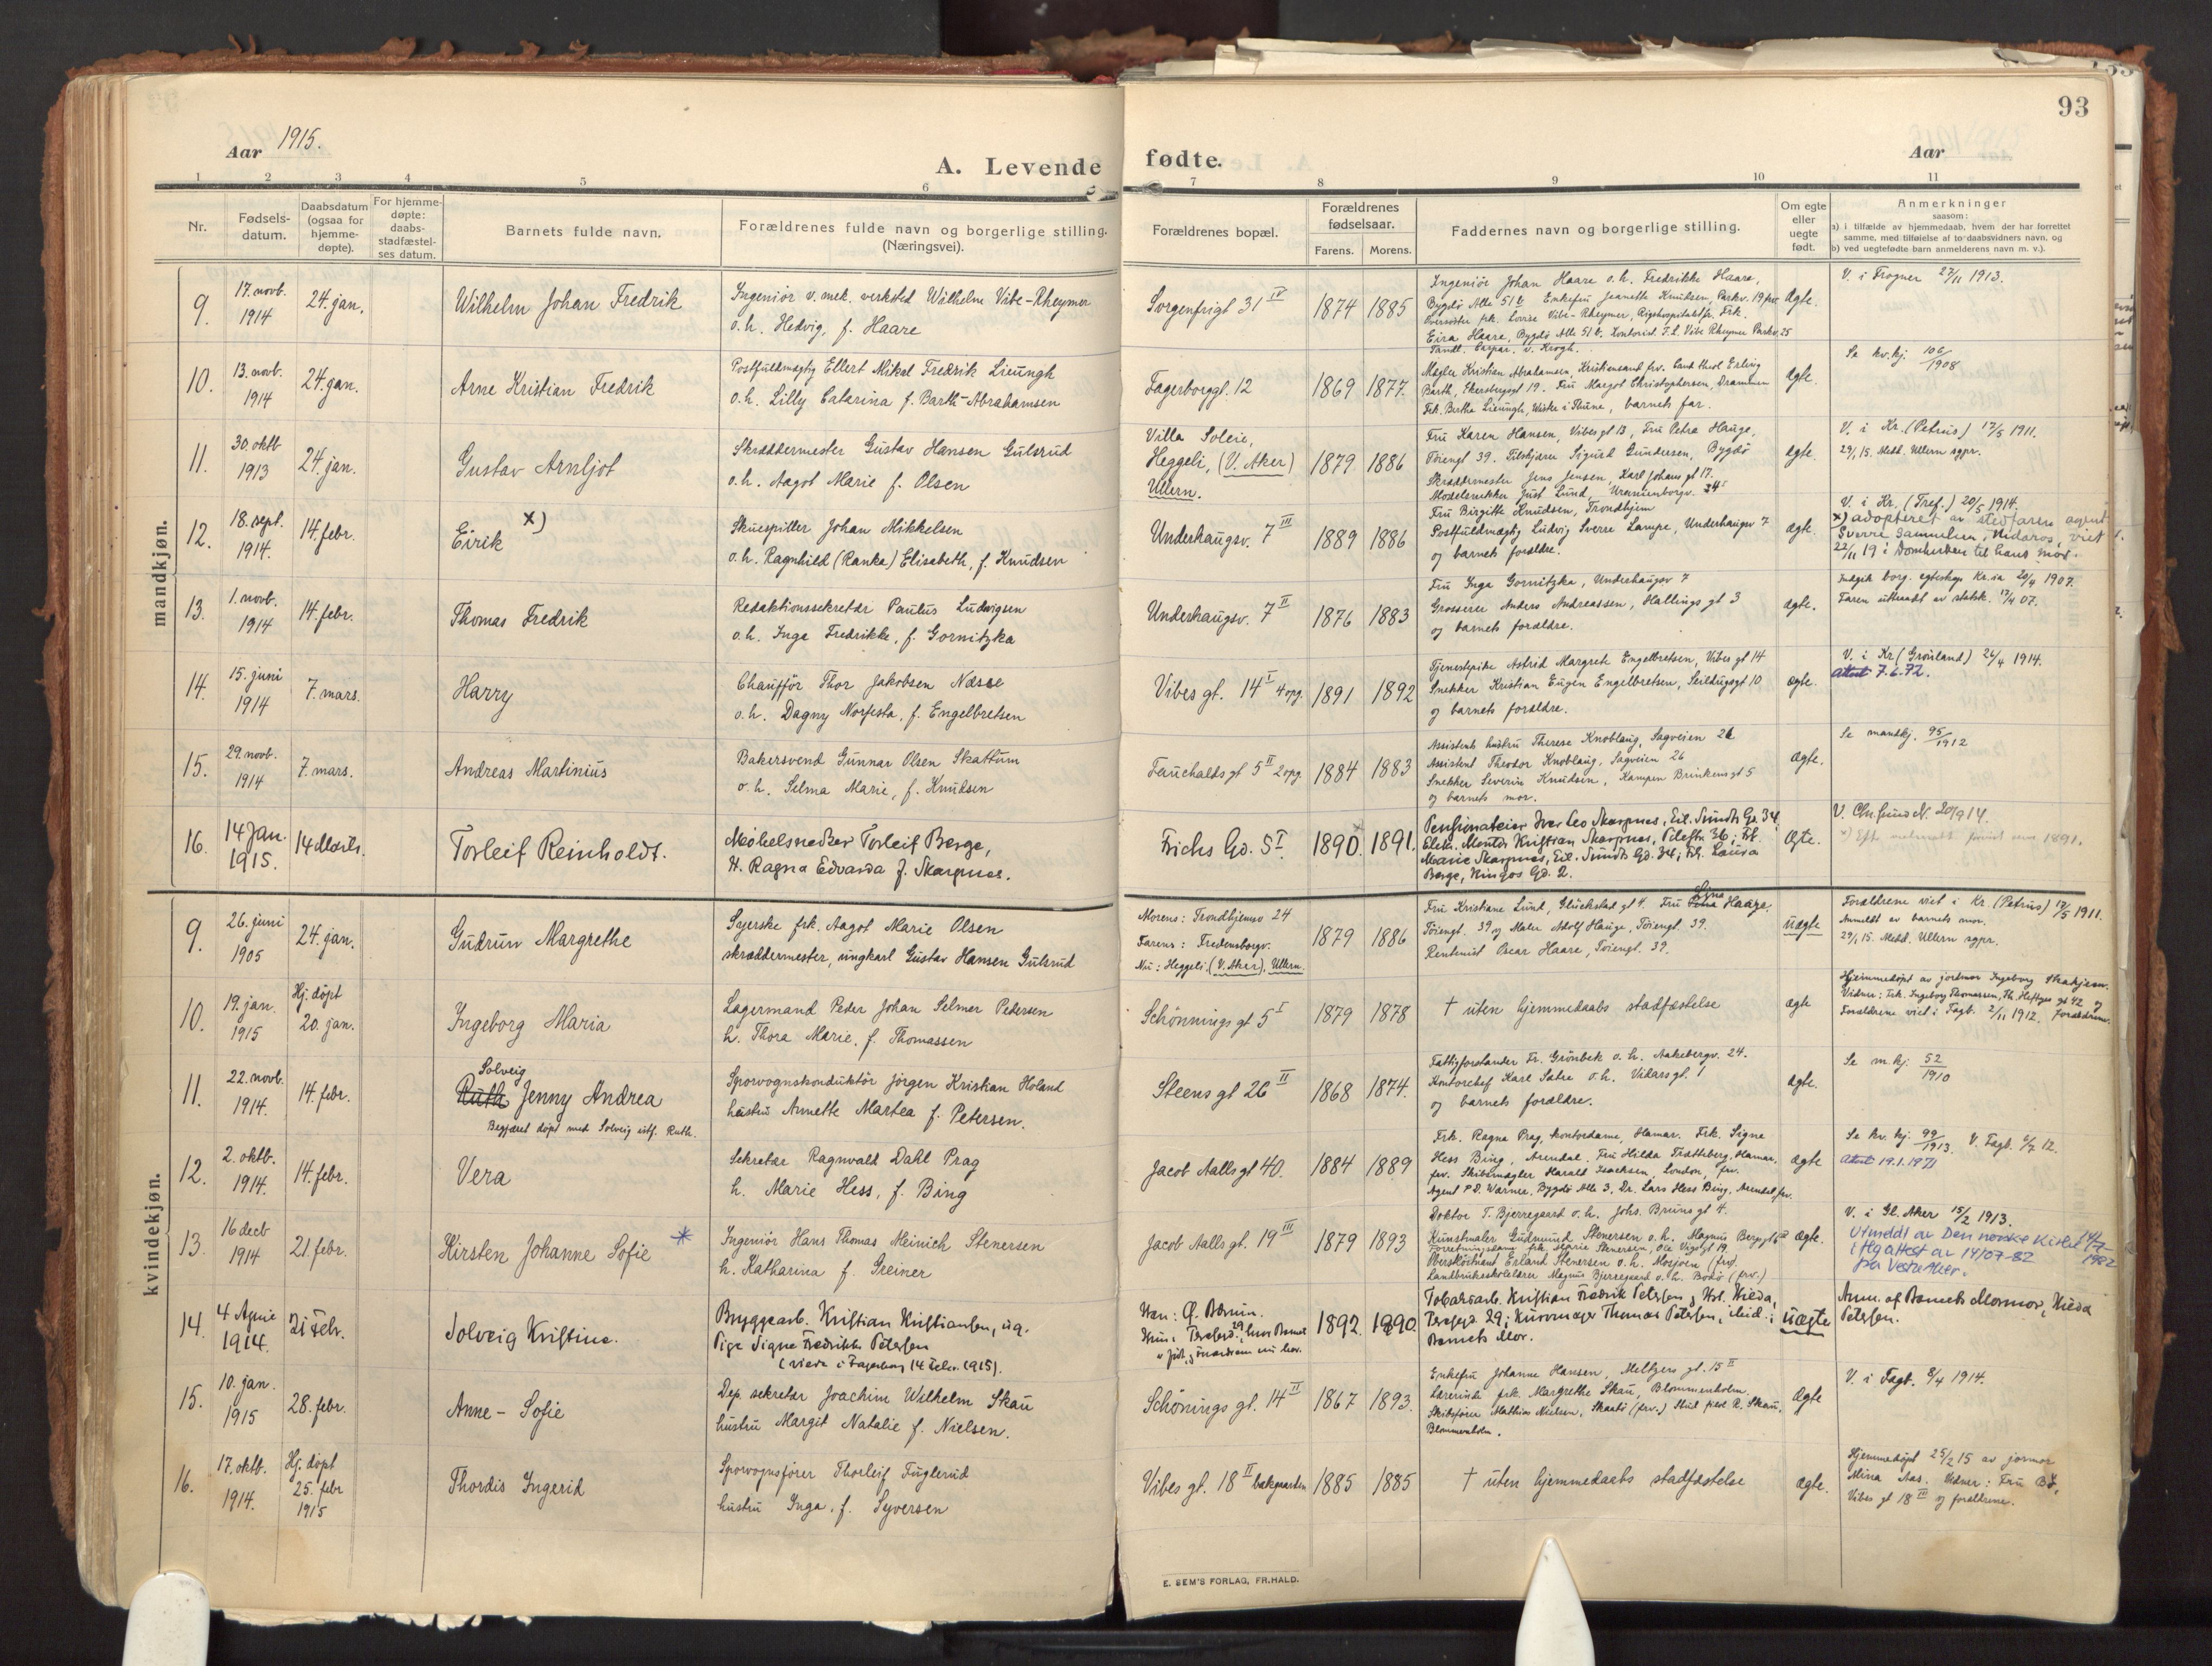 93
Aar 1915.
A. Levende fødte.
Aar
1 2 3 4 5 6 7 8 9 10 11
Nr.
Fødsels-
datum.
Daabsdatum
(ogsaa for
hjemme-
døpte).
For hjemme-
døpte:
daabs-
stadfæstel-
ses datum.
Barnets fulde navn.
Forældrenes fulde navn og borgerlige stilling.
(Næringsvei).
Forældrenes bopæl.
Forældrenes
fødselsaar.
Farens. Morens.
Faddernes navn og borgerlige stilling.
Om egte
eller
uegte
født.
Anmerkninger
saasom:
a) i tilfælde av hjemmedaab, hvem der har forrettet
samme, med tilføielse af to daabsvidners navn, og
b) ved uegtefødte barn anmelderens navn m. v.).
mandkjøn.
9.
17. novb.
1914
24. jan.
Wilhelm Johan Fredrik
Ingeniør v. mek. verksted Wilhelm Vibe-Rheymer
o.h. Hedvig, f. Haare
Sorgenfrigt 31 IV
1874 1885
Ingeniør Johan Haare o.h. Fredrikke Haare,
Bygdö Alle 51 b Enkefru Jeanette Knudsen, Parkv. 19
Oversöster frk. Lovise Vibe-Rheymer, Rigshospitalet frk.
Eira Haare, Bygdö Alle 51 b. Kontorist T. L. Vibe Rheymer Parkv. 25
Tandl. Caspar v. Krogh.
Ægte.
V. i Frogner 27/11 1913.
10.
13. novb.
1914
24. jan.
Arne Kristian Fredrik
Postfuldmægtig Ellert Mikal Fredrik Lieungh
o.h. Lilly Catarina f. Barth-Abrahamsen
Fagerborggt. 12
1869 1877.
Mægler Kristian Abrahamsen, Kristiansand frv. Cand. theol Erling
Barth, Ekersbergsgt 19. Fru Margot Christophersen, Drammen
Frk. Bertha Lieungh, barnets far.
ægte.
Se kv.kj. 106/1908
11.
30. oktb
1913
24. jan.
Gustav Arnljot
Skræddermester Gustav Hansen Gulsrud
o.h. Aagot Marie f. Olsen
Villa Soleie,
Heggeli, (V. Aker)
Ullern.
1879 1886
Fru Karen Hansen, Vibes gt 13, Fru Petra Hauge,
Töiengt 39. Sigurd Gundersen, Bygdö
Skræddermester Jens Jensen, Karl Johans gt 17.
Modelsnekker Just Lund, Uranienborgv. 34
ægte.
V. i Kr. (Petrus) 17/5 1911.
29/1 15. Medd. Ullern sgpr.
12.
18. sept.
1914.
14. febr.
Eirik x)
Skuespiller Johan Mikkelsen
o.h. Ragnhild (Ranka) Elisabeth, f. Knudsen
Underhaugsv. 7 III
1889 1886
Fru Birgitte Knudsen, Trondhjem
Postfuldmægtig Ludvig Sverre Lampe, Underhaugsv 7
og barnets forældre.
ægte.
V. i Kr. (Tref.) 20/5 1914.
x) adopteret av stedfaren agent
Sverre Samuelsen, Nidaros, viet
22/11 19 i Domkirken til hans mor.
13.
1. novb.
1914
14. febr.
Thomas Fredrik
Redaktionssekretær Paulus Ludvigsen
o.h. Inga Fredrikke, f. Gornitzka
Underhaugsv. 7 II
1876 1883
Fru Inga Gornitzka, Underhaugsv 7
Grosserer Anders Andreassen, Hallings gt 3
og barnets forældre.
ægte.
Indgik borg. egteskap Kr.ia 20/4 1907.
Faren uttraadt av statsk. 17/4 07.
14.
15. juni
1914
7. mars.
Harry
Chaufför Thor Jakobsen Næsse
o.h. Dagny Norfesta, f. Engelbretsen
Vibes gt. 14 I 4 opg.
1891 1892
Tjenestepike Astrid Margrete Engelbretsen, Vibes gt 14
Snekker Kristian Eugen Engelbretsen, Seildugsgt 10
og barnets forældre.
ægte.
V. i Kr (Grönland) 26/4 1914.
attest 7.6.72.
15.
29. novb.
1914
7. mars.
Andreas Martinius
Bakersvend Gunnar Olsen Skattum
o.h. Selma Marie, f. Knudsen
Fauchaldsgt 5 II 2 opg.
1884 1883
Assistents hustru Therese Knoblaug, Sagveien 26
Assistent Theodor Knoblaug, Sagveien 26
Snekker Severin Knudsen, Kampen Brinkens gt 5
og barnets mor.
ægte.
Se mandkj. 95/1912
16.
14 Jan.
1915.
14 Marts.
Torleif Reinholdt.
Møbelsnedker Torleif Berge,
H. Ragna Edvarda f. Skarpnes.
Frichs Gd. 5 I.
1890. 1891.
Pensionateier Iver Leo Skarpnes, Eil. Sundts Gd. 34,
Elekt. Montør Kristian Skarpnes, Pilestr. 36; Frk.
Marie Skarpnes, Eil. Sundts Gd. 34; Frk. Laura
Berge, Kingos Gd. 2.
Ægte.
1914.
1891.
kvindekjøn.
9.
26. juni
1905
24. jan.
Gudrun Margrethe
Syerske frk. Aagot Marie Olsen
skræddermester, ungkarl Gustav Hansen Gulsrud
Morens: Trondhjemsv 24
Farens: Fredensborgv.
Nu: Heggeli, (V. Aker), Ullern.
1879 1886
Fru Kristiane Lund, Glückstad gt 4. Fru Lina Hauge,
Töiengt. 39 og Maler Adolf Hauge, Töiengt. 39.
Rentenist Oscar Haare, Töiengt. 39.
uægte
Forældrene viet i Kr. (Petrus) 17/5 1911.
Anmeldt av barnets mor.
29/1 15. Medd. Ullern sgpr.
10.
19. jan.
1915
Hj. döpt
20. jan.
Ingeborg Maria
Lagermand Peder Johan Selmer Pedersen
h. Thora Marie, f. Thomassen
Schönnings gt 5 I
1879 1878
† uten hjemmedaabs stadfæstelse
ægte
Hjemmedöpt av jordmor Ingeborg
Vidner: Frk. Ingeborg Thomassen, Th. Heftyes gt 42 og
Forældrene viet i Fagb. 2/11 1912. forældrene.
11.
22. novb.
1914.
14. febr.
Solveig
Ruth Jenny Andrea
Begjæret döpt med Solveig istf. Ruth.
Sporvognskonduktör Jörgen Kristian Holand
hustru Annette Martea f. Petersen.
Steens gt 26 II
1868 1874.
Fattigforstander Fr. Grönbek o.h. Aakebergv. 24.
Kontorchef Karl Satre o.h. Vidars gt. 1
og barnets forældre.
ægte.
Se m.kj. 52/1910
12.
2. oktb.
1914.
14. febr.
Vera
Sekretær Ragnvald Dahl Prag
h. Marie Hess, f. Bing
Jacob Aalls gt 40.
1884 1889
Frk. Ragna Prag, kontordame, Hamar. Frk. Signe
Hess Bing, Arendal. Fru Hilda Trætteberg, Hamar,
frv. Skibsmægler Harald Isachsen, London, frv.
Agent P.D. Warner, Bygdö Alle 3, Dr. Lars Hess Bing, Arendal frv.
ægte
Se kv. kj 99/1913. V. Fagb. 6/7 12.
attest 19.1.1971
13.
16 decb
1914
21. febr.
Kirsten Johanne Sofie *
Ingeniør Hans Thomas Meinich Stenersen
h. Katharina f. Greiner
Jacob Aalls gt. 19 III
1879 1893
Doktor T. Bjerregaard o.h. Johs. Bruns gt 4.
Kunstmaler Gudmund Stenersen o.h. Magnus Bergs gt 6
Forretningsdame frk. Marie Stenersen, Ole Vigs gt 19.
Oberstlöitnant Erland Stenersen o.h. Mosjöen (frv).
Landbrukeskolelærer Magnus Bjerregaard o.h. Bodö (frv.)
ægte.
V. i Gl. Aker 15/2 1913.
Utmeldt av Den norske Kirke 14/7-1982
i flg attest av 14/07-82
fra Vestre Aker.
14.
4 April
1914.
21 Febr.
Solveig Kristine.
Bryggearb. Kristian Kristiansen, ug.
Pige Signe Fredrikke Petersen
(viede i Fagerborg 14 Febr. 1915).
1892. 1890.
Tobaksarb. Kristian Fredrik Petersen og Hst. Hilda,
29; Kurvmager Thomas Petersen, ibid.;
Barnets Mor.
uægte
Anm. af Barnets Mormor, Hilda
Petersen.
15.
10. jan.
1915
28. febr.
Anne-Sofie
Dep. sekretær Joachim Wilhelm Skau
hustru Margit Natalie f. Nielsen.
Schönings gt. 14 II
1867 1893.
Enkefru Johanne Hansen, Meltzers gt. 15 II
Lærerinde frk. Margrethe Skau, Blommenholm
Skibsfører Mathias Nielsen, Skaatö (frv.) Stud. R. Skau,
Blommenholm.
ægte
V. i Fagb. 8/4 1914.
16.
17. oktb.
1914.
Hj. döpt
25. febr
1915
Thordis Ingerid
Sporvognsfører Thorleif Fuglerud
hustru Inga, f. Syversen
Vibes gt. 18 II bakgaarden
1885 1885
† uten hjemmedaabs stadfæstelse
ægte.
Hjemmedöpt 25/2 15 av jormor
Mina Aas. Vidner: Fru Bö,
Vibes gt 18 III og forældrene.
E. SEM'S FORLAG, FR.HALD.